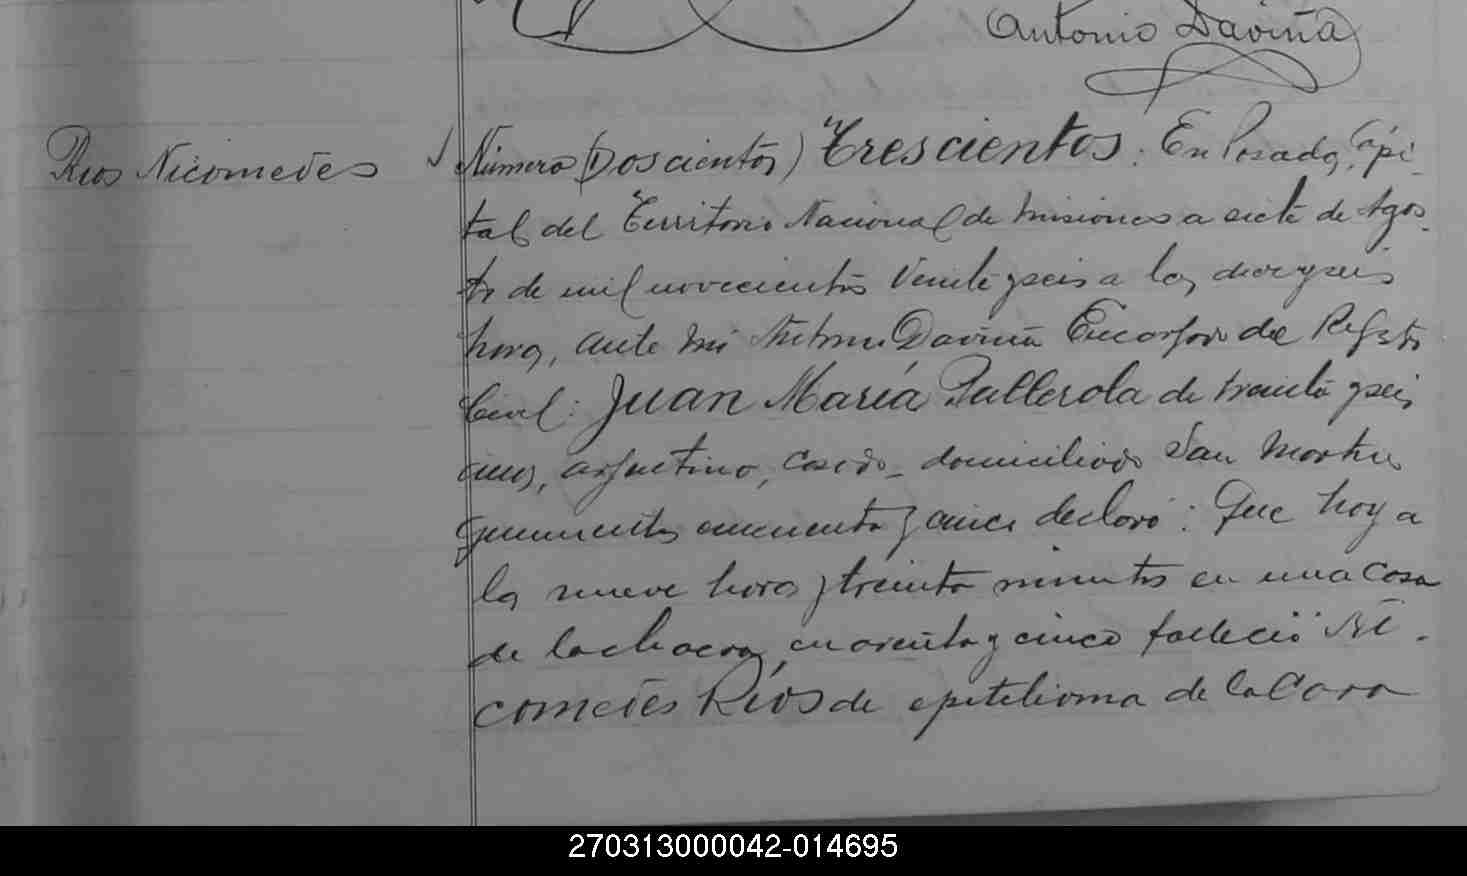 Antonio Daviña
Rios Nicomedes
Número (Doscientos) Trescientos: En Posadas, Capi-
tal del Territorio Nacional de Misiones a siete de Agos-
to de mil novecientos veinte y seis a las diez y seis
horas, ante mi Antonio Daviña Encargado del Registro
Civil: Juan María Pallerola de treinta y seis
años, argentino, casado, domiciliado San Martin
quinientos cincuenta y cinco declaró: Que hoy a
las nueve horas y treinta minutos en una casa
de la chacra cuarenta y cinco falleció Ni-
comedes Ríos de epitelioma de la Cara
270313000042-014695